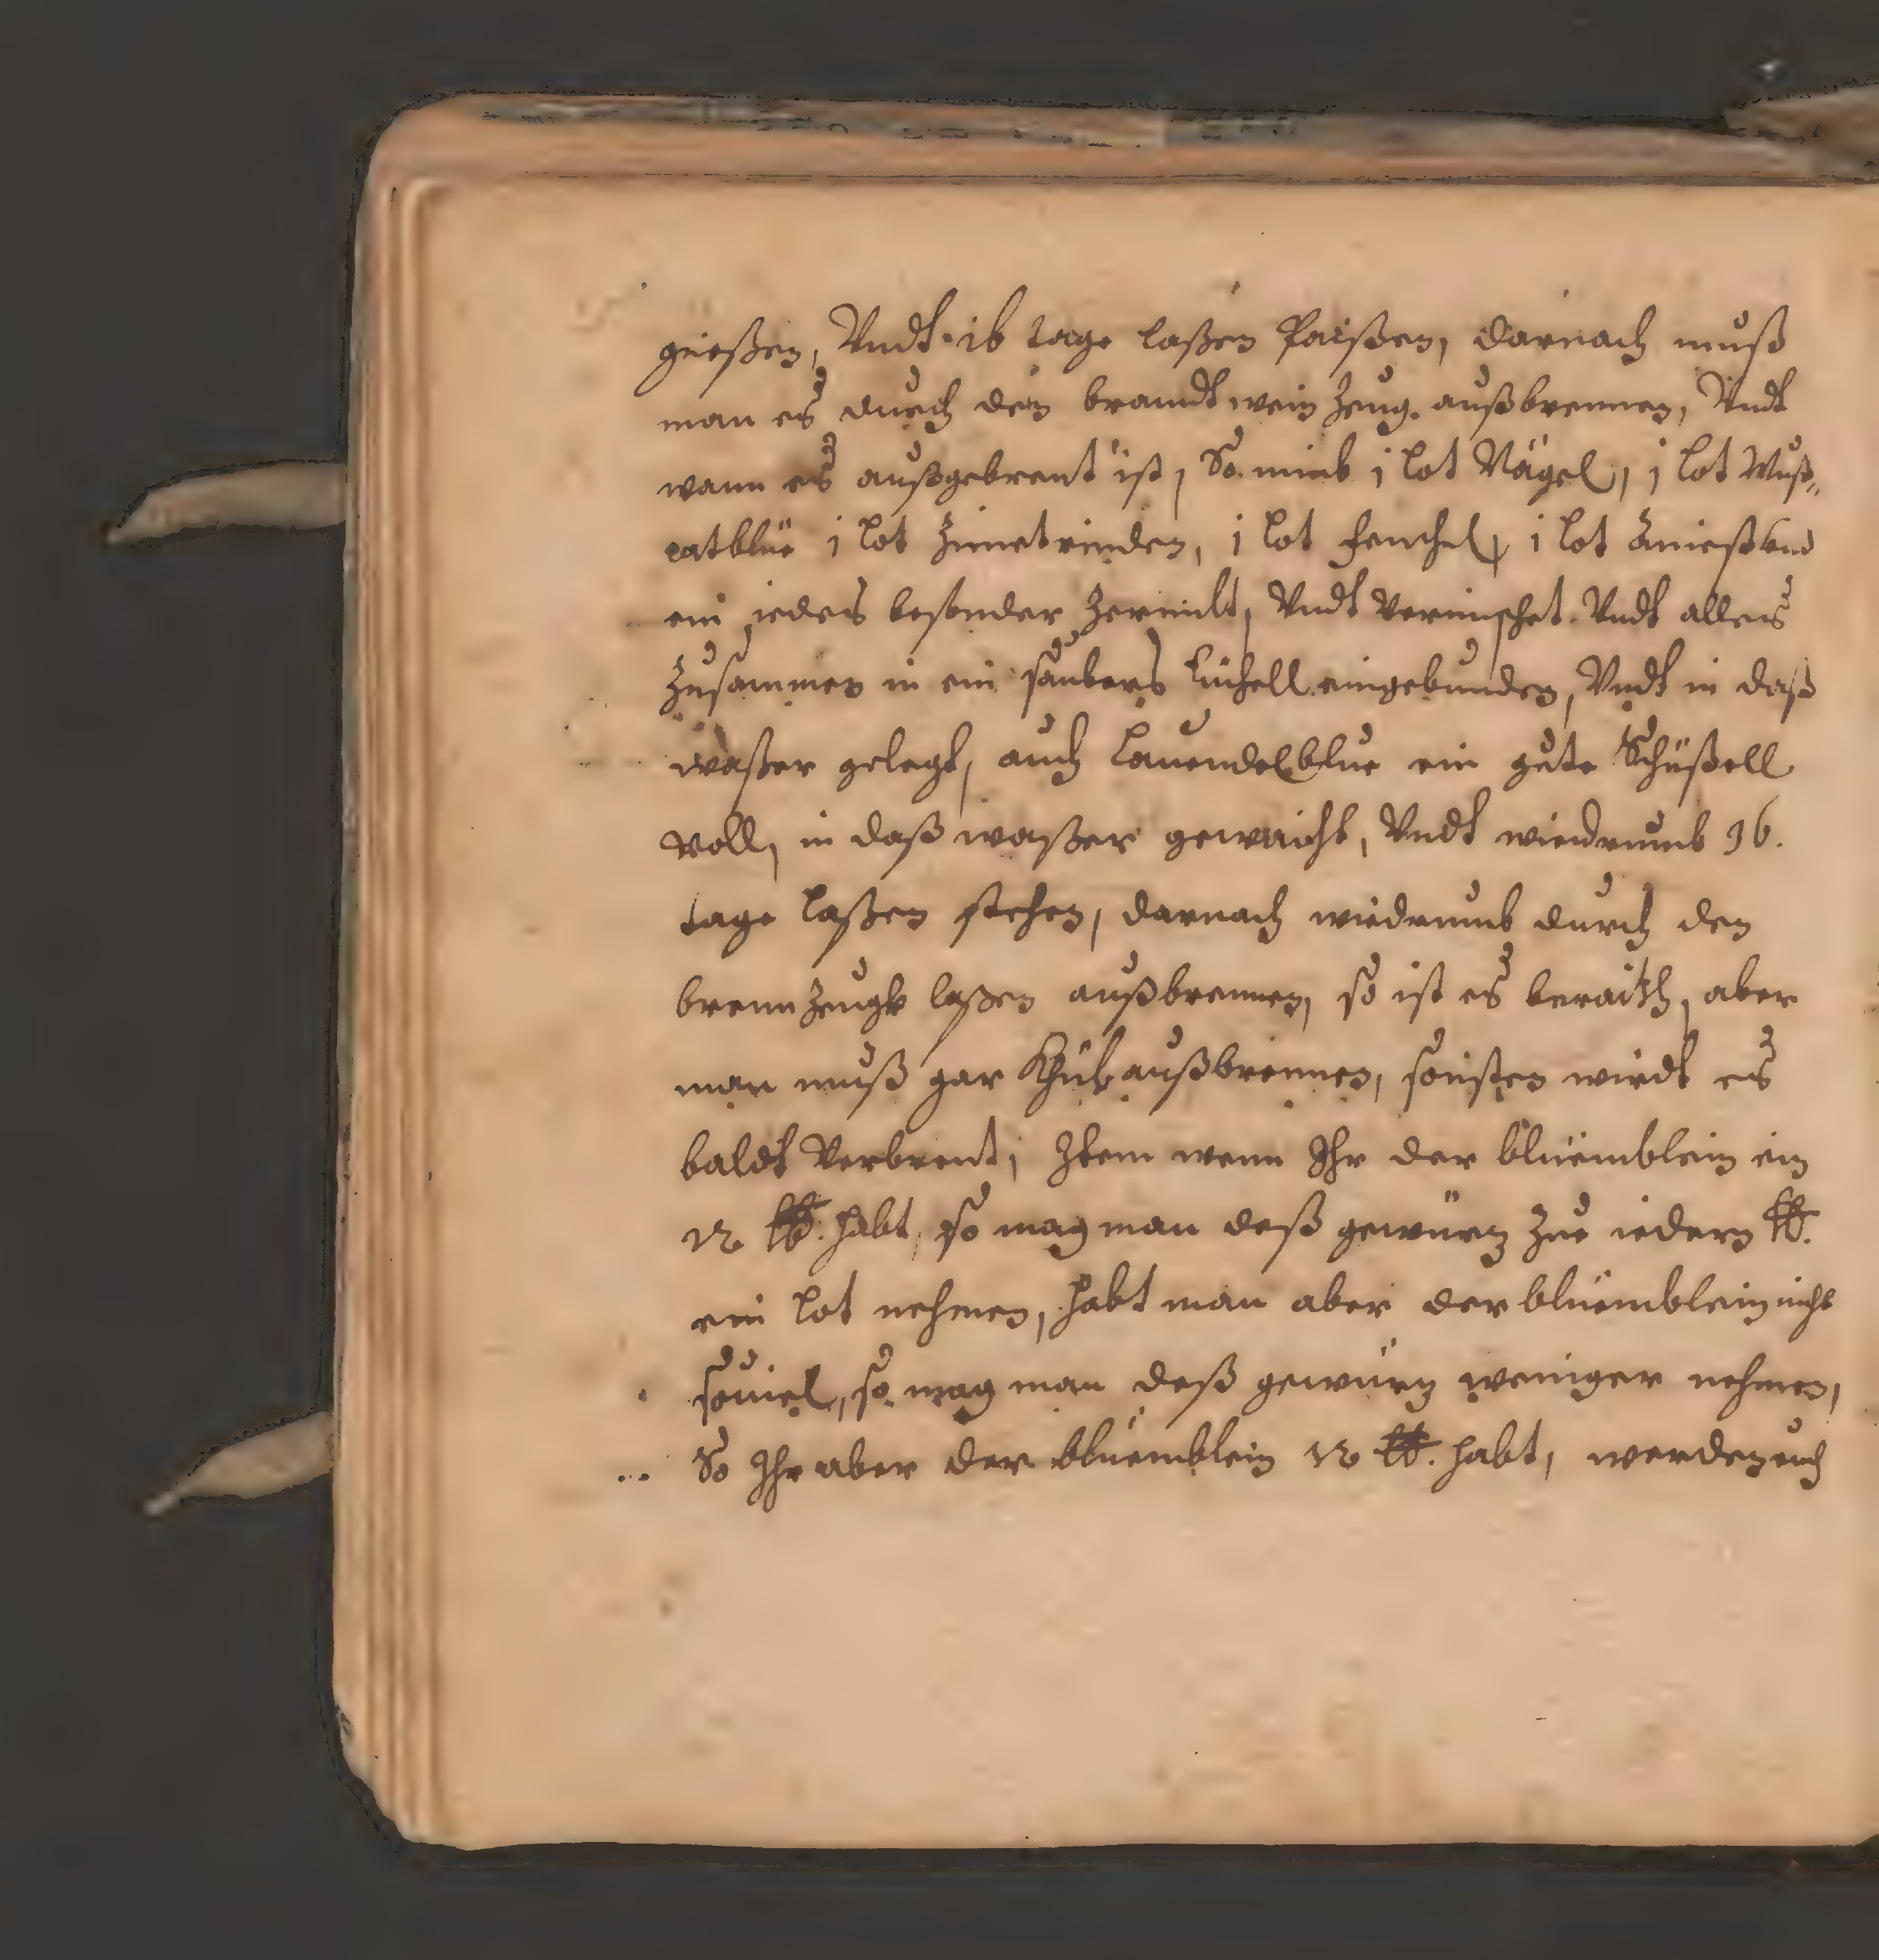 gießen, Vndt 16 tage laßen Paißen, darnach muß
man es durch den brandtwein Zeug außbrennen, Vndt
wann es außgebrent ist, So nimb 1 lot Nägel, 1 lot Muß„
catblüe 1 lot Zimetrinden, 1 lot fenchel, 1 lot
ein jedes besonder Zerknilt, Vndt Vermischet Vndt alles
Zusammen in ein saubers tüchell eingebunden, Vndt in daß
waßer gelegt, auch lauendelblue ein gute Schüßell
Voll, in daß waßer gewaicht, Vndt wiedrumb 16.
tage laßen stehen, darnach wiedrumb durch den
brennzeugk laßen außbrennen, so ist es beraith, aber
man muß gar Khül außbrennen, sonsten wirdt es
baldt Verbrent, Item wenn Ihr der blüemblein ein
12 ℔. habt, so mag man deß gewürtz Zue iedem ℔.
ein lot nehmen, habt man aber der blüemblein nicht
souiel, so mag man deß gewürtz weniger nehmen,
So Ihr aber der blüemblein 12 ℔. habt, werden euch